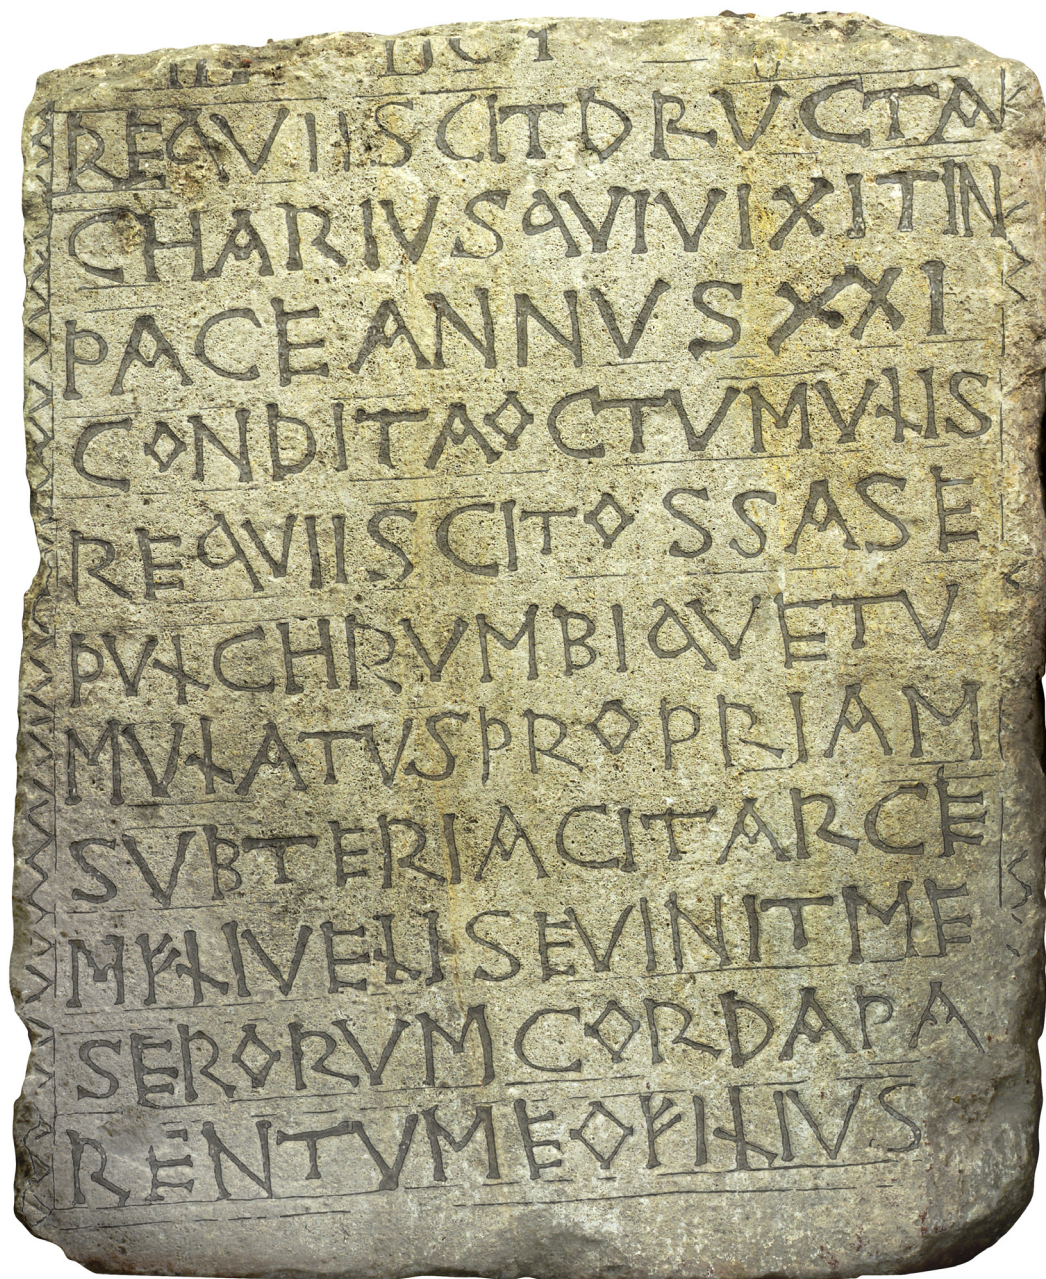 REQVIISCITDRVCTA
CHARIVSQVIVIXITIN
PACEANNVSXXI
CONDITAOCTVMVLIS
REQVIISCITOSSASE
PVLCHRVMBIQVETV
MVLATVSPROPRIAM
SVBTERIACITARCE
MFLIVELISEVINTME
SERORVMCORDAPA
RENTVMEOFILIVS